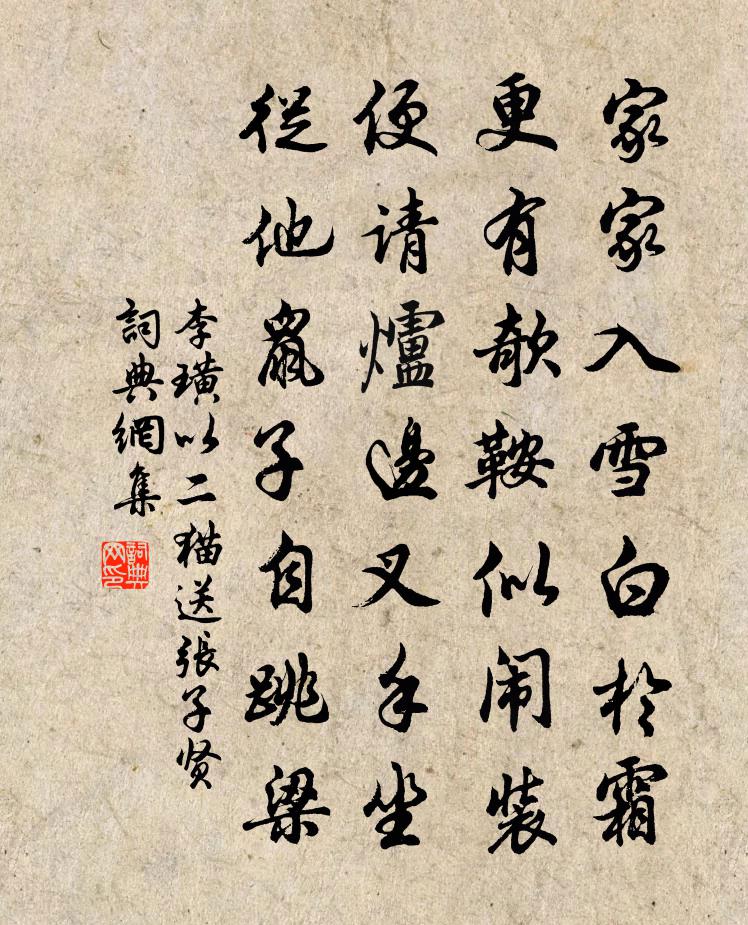 家家入雪白於霜
更有欹鞍似闹装
便请爐邊叉手坐
從他鼠子自跳梁
李璜以二猫送張子贤
詞典網集
詞典网印